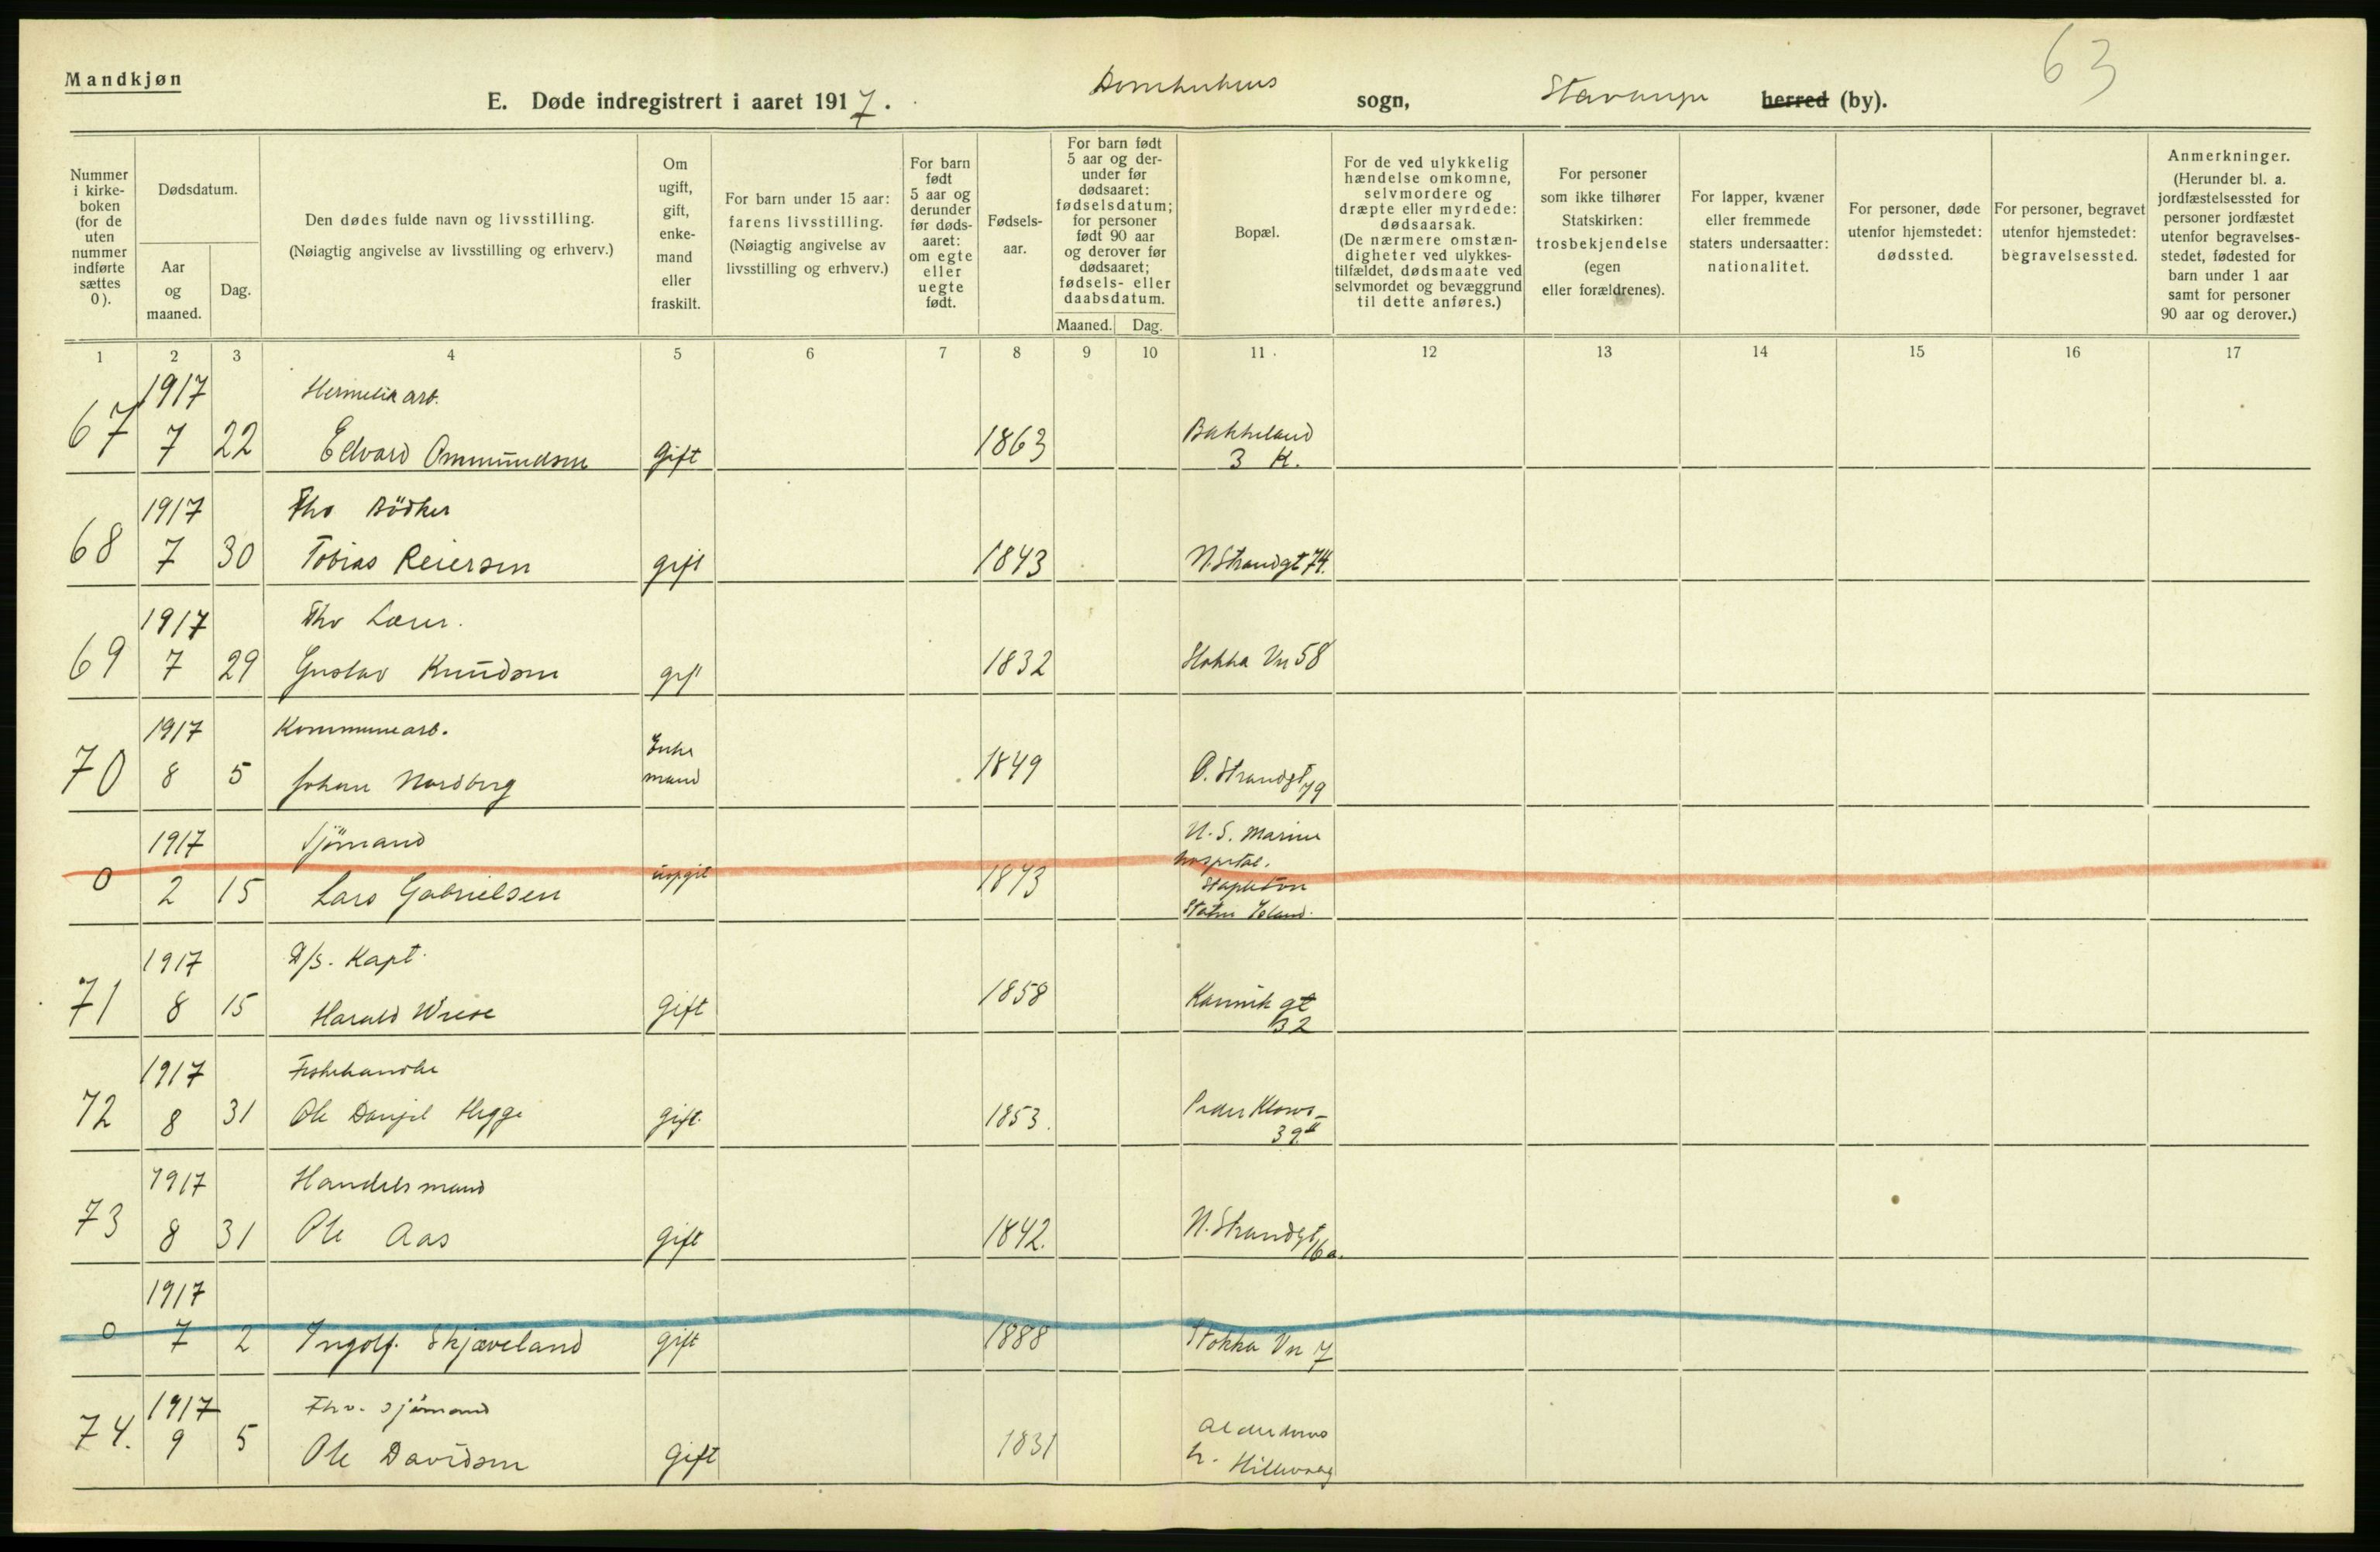 63
Mandkjøn
E. Døde indregistrert i aaret 1917. Domkirkens sogn, Stavanger herred (by).
Nummer i kirke-boken (for de uten nummer indførte sættes 0).
Dødsdatum.
Aar og maaned.
Dag.
Den dødes fulde navn og livsstilling.
(Nøiagtig angivelse av livsstilling og erhverv.)
Om ugift, gift, enke-mand eller fraskilt.
For barn under 15 aar: farens livsstilling.
(Nøiagtig angivelse av livsstilling og erhverv.)
For barn født 5 aar og derunder før døds-aaret: om egte eller uegte født.
Fødsels-aar.
For barn født 5 aar og der-under før dødsaaret: fødselsdatum; for personer født 90 aar og derover før dødsaaret; fødsels- eller daabsdatum.
Maaned. Dag.
Bopæl.
For de ved ulykkelig hændelse omkomne, selvmordere og dræpte eller myrdede: dødsaarsak.
(De nærmere omstæn-digheter ved ulykkes-tilfældet, dødsmaate ved selvmordet og bevæggrund til dette anføres.)
For personer som ikke tilhører Statskirken: trosbekjendelse (egen eller forældrenes).
For lapper, kvæner eller fremmede staters undersaatter: nationalitet.
For personer, døde utenfor hjemstedet: dødssted.
For personer, begravet utenfor hjemstedet: begravelsessted.
Anmerkninger.
(Herunder bl. a. jordfæstelsessted for personer jordfæstet utenfor begravelses-stedet, fødested for barn under 1 aar samt for personer 90 aar og derover.)
1 2 3 4 5 6 7 8 9 10 11 12 13 14 15 16 17
1917 Hermetikarb.
67 7 22 Edvard Ommundsen gift 1863 Bakkeland
3 K.
1917 Fhv Bödker
68 7 30 Tobias Reiersen gift 1843 N. Strandgt 74.
1917 Fhv Lærer.
69 7 29 Gustav Knudsen gift 1832 Stokka Vn 58
1917 Kommunearb.
70 8 5 Johan Nordberg Enke
mand 1849 Ø. Strandgt 79
1917 Sjömand
0 2 15 Lars Gabrielsen uopgit 1873 U.S. Marine
hospital.
Stapleton
Staten Island.
1917 D/S. Kapt.
71 8 15 Harald Wiese gift 1858 Kannik gt
32
1917 Fiskehandler
72 8 31 Ole Danjel Hegge gift. 1853. Peder Klows-
39 II
1917 Handelsmand
73 8 31 Ole Aas gift 1842. N. Strandgt
16a.
1917
0 7 2 Ingolf. Skjæveland gift 1888 Stokka Vn 7
1917 Fhv. Sjömand
74. 9 5 Ole Davidsen gift 1831 Alderdoms
h. Hillevaag